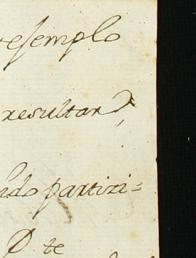 exemplo
resultar
ndo partizi=
D te